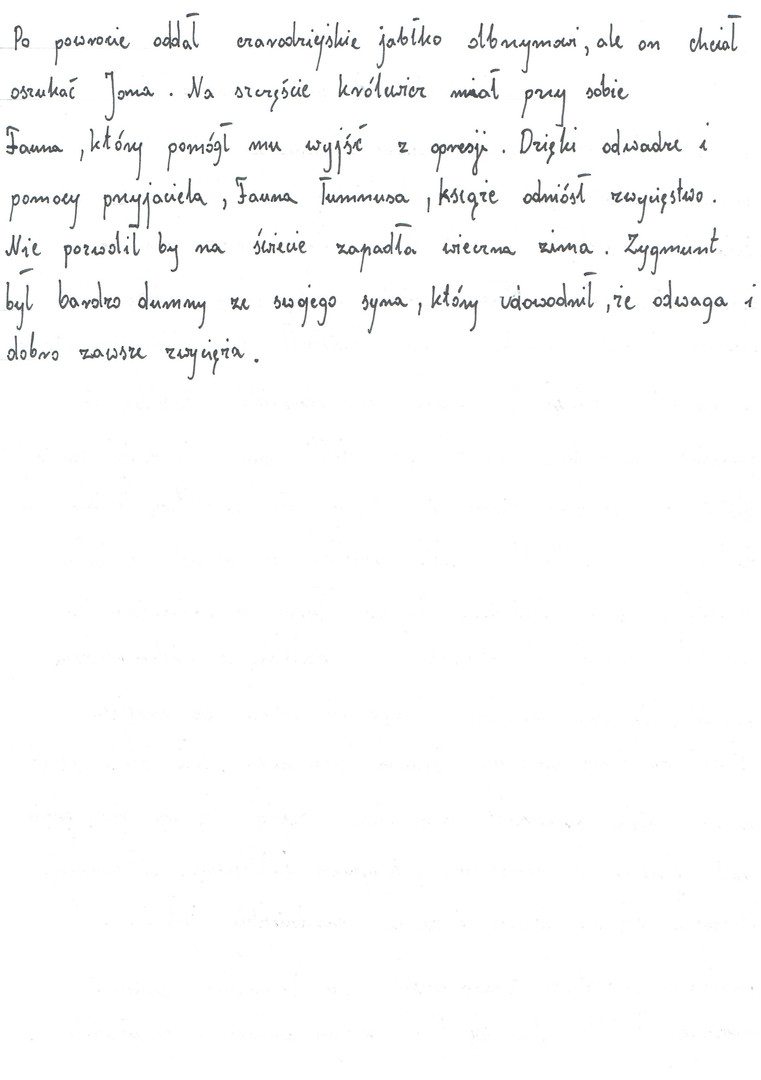 Po powrocie oddał czarodziejskie jabłko olbrzymowi, ale on chciał
oszukać Jona. Na szczęście królewicz miał przy sobie
Fauna, który pomógł mu wyjść z opresji. Dzięki odwadze i
pomocy przyjaciela, Fauna Tumnusa, książe odniósł zwycięstwo.
Nie pozwolił by na świecie zapadła wieczna zima. Zygmunt
był bardzo dumny ze swojego syna, który udowodnił, że odwaga i
dobro zawsze zwycięża.